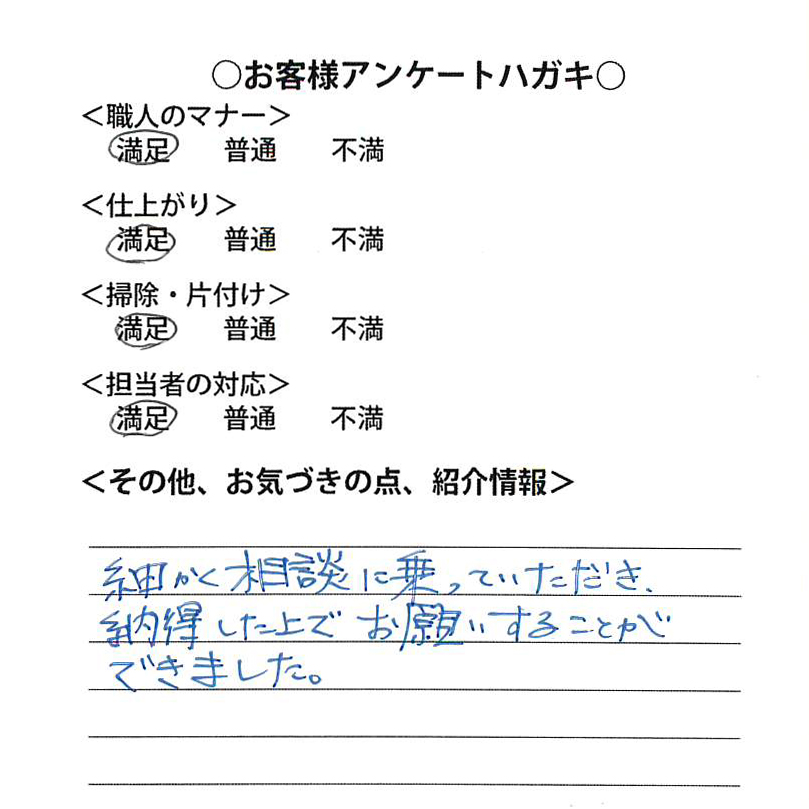 ○お客様アンケートハガキ○
＜職人のマナー＞
満足 普通 不満
＜仕上がり＞
満足 普通 不満
＜掃除・片付け＞
満足 普通 不満
＜担当者の対応＞
満足 普通 不満
＜その他、お気づきの点、紹介情報＞
細かく相談に乗っていただき、
納得した上でお願いすることが
できました。